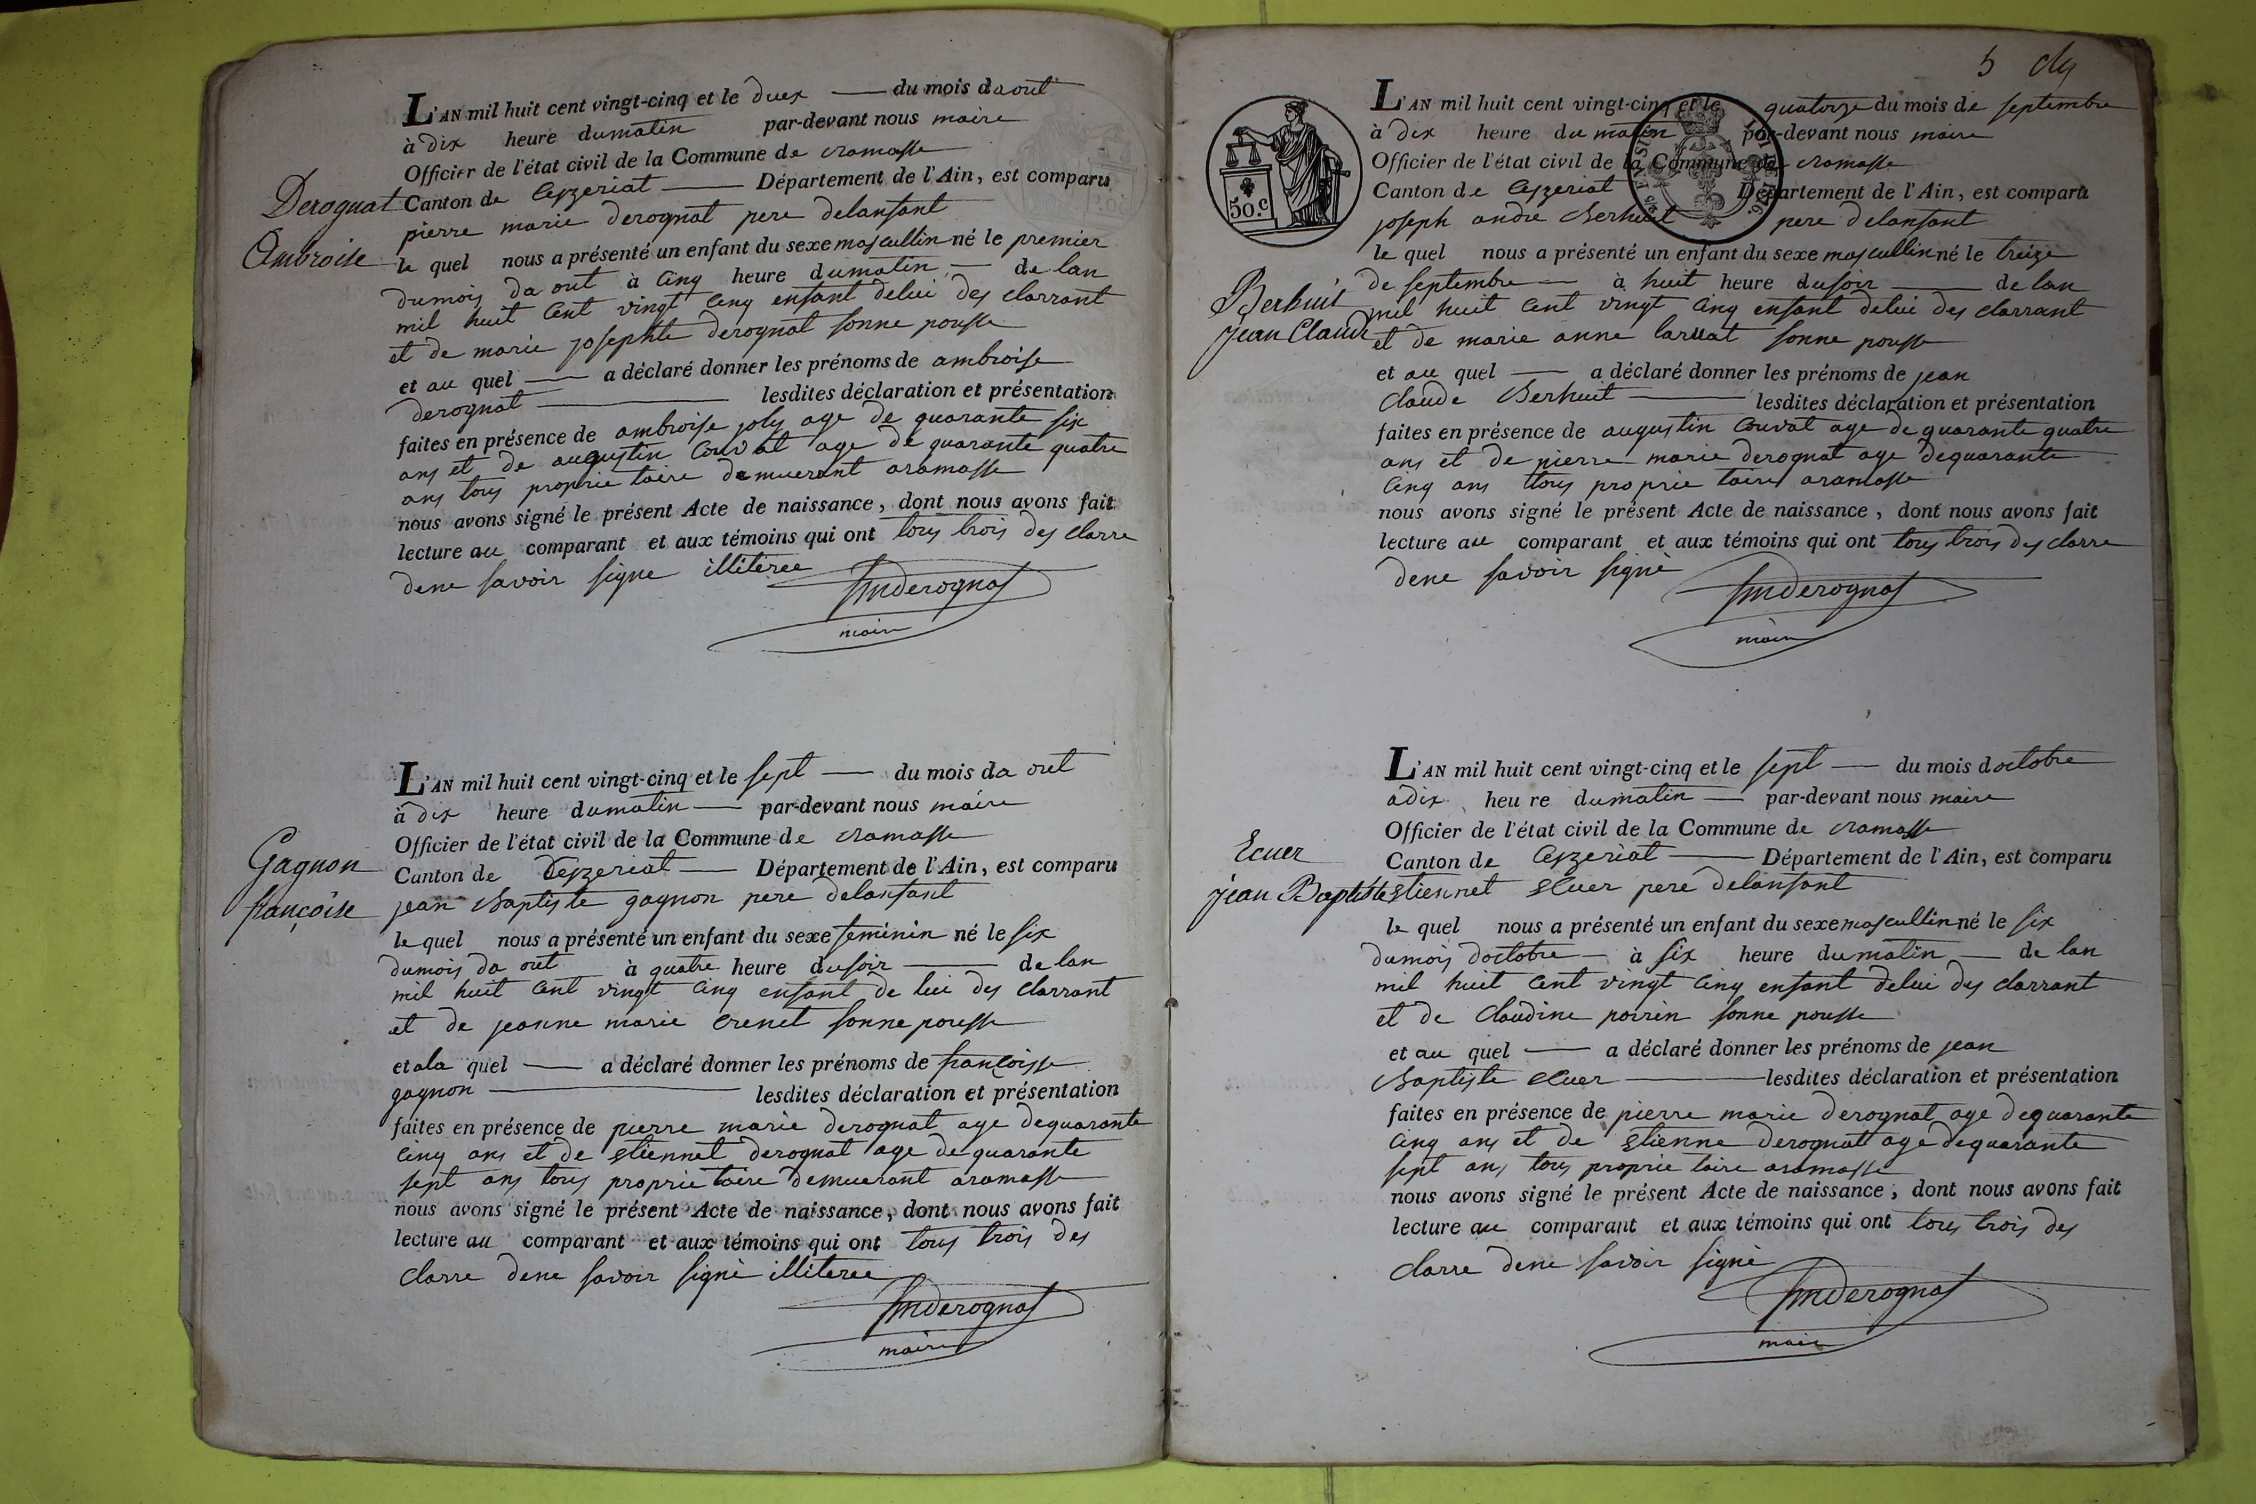 L'AN mil huit cent vingt-cinq et le duex du mois daout
à dix heure du matin par-devant nous maire
Officier de l'état civil de la Commune de ramasse
Canton de Ceyzeriat Département de l'Ain, est comparu
Derognat
Ambroise
pierre marie derognat pere delanfant
le quel nous a présenté un enfant du sexe mascullin né le premier
dumois da out à cinq heure du matin de lan
mil huit cent vingt cinq enfant delui des clarrant
et de marie josephte derognat sonne pousse
et au quel a déclaré donner les prénoms de ambroise
derognat lesdites déclaration et présentation
faites en présence de ambroise joly age de quarante six
ans et de augustin Couvat age de quarante quatre
ans tous proprietaire demuerant aramasse
nous avons signé le présent Acte de naissance, dont nous avons fait
lecture au comparant et aux témoins qui ont tous trois des clarre
dene savoir signe illiteree
pmderognat
maire
L'AN mil huit cent vingt-cinq et le sept du mois da out
à dix heure du matin par-devant nous maire
Officier de l'état civil de la Commune de ramasse
Canton de Ceyzeriat Département de l'Ain, est comparu
Gagnon
françoise
jean Baptiste gagnon pere delanfant
le quel nous a présenté un enfant du sexe feminin né le six
dumois da out à quatre heure dusoir de lan
mil huit cent vingt cinq enfant de lui des clarrant
et de jeanne marie crenet sonne pousse
et ala quel a déclaré donner les prénoms de françoisse
gagnon lesdites déclaration et présentation
faites en présence de pierre marie derognat age dequarante
cinq ans et de Etiennet derognat age de quarante
sept ans tous proprietaire demuerant aramasse
nous avons signé le présent Acte de naissance, dont nous avons fait
lecture au comparant et aux témoins qui ont tous trois des
clarre dene savoir signé illiteree
pmderognat
maire
5
L'AN mil huit cent vingt-cinq et le quatorze du mois de septembre
à dix heure du matin par-devant nous maire
Officier de l'état civil de la Commune de ramasse
50.c
Canton de Ceyzeriat Département de l'Ain, est comparu
joseph andre Berhuit pere delanfant
le quel nous a présenté un enfant du sexe mascullin né le treize
de septembre à huit heure dusoir de lan
Berhuit
jean Claude
mil huit cent vingt cinq enfant delui des clarrant
et de marie anne laruat sonne pousse
et au quel a déclaré donner les prénoms de jean
claude Berhuit lesdites déclaration et présentation
faites en présence de augustin couvat age de quarante quatre
ans et de pierre marie derognat age dequarante
cinq ans tous proprietaire aramasse
nous avons signé le présent Acte de naissance, dont nous avons fait
lecture au comparant et aux témoins qui ont tous trois des clarre
dene savoir signé
pmderognat
maire
L'AN mil huit cent vingt-cinq et le sept du mois doctobre
adix heu re du matin par-devant nous maire
Officier de l'état civil de la Commune de ramasse
Canton de Ceyzeriat Département de l'Ain, est comparu
Ecuer
jean Baptiste
Etiennet Ecuer pere delanfant
le quel nous a présenté un enfant du sexe mascullin né le six
dumois doctobre à six heure du matin de lan
mil huit cent vingt cinq enfant delui des clarrant
et de Claudine poirin sonne pousse
et au quel a déclaré donner les prénoms de jean
Baptiste Ecuer lesdites déclaration et présentation
faites en présence de pierre marie derognat age dequarante
cinq ans et de Etienne derognatt age dequarante
sept ans tous proprietaire aramasse
nous avons signé le présent Acte de naissance, dont nous avons fait
lecture au comparant et aux témoins qui ont tous trois des
clarre dene savoir signé
pmderognat
maire